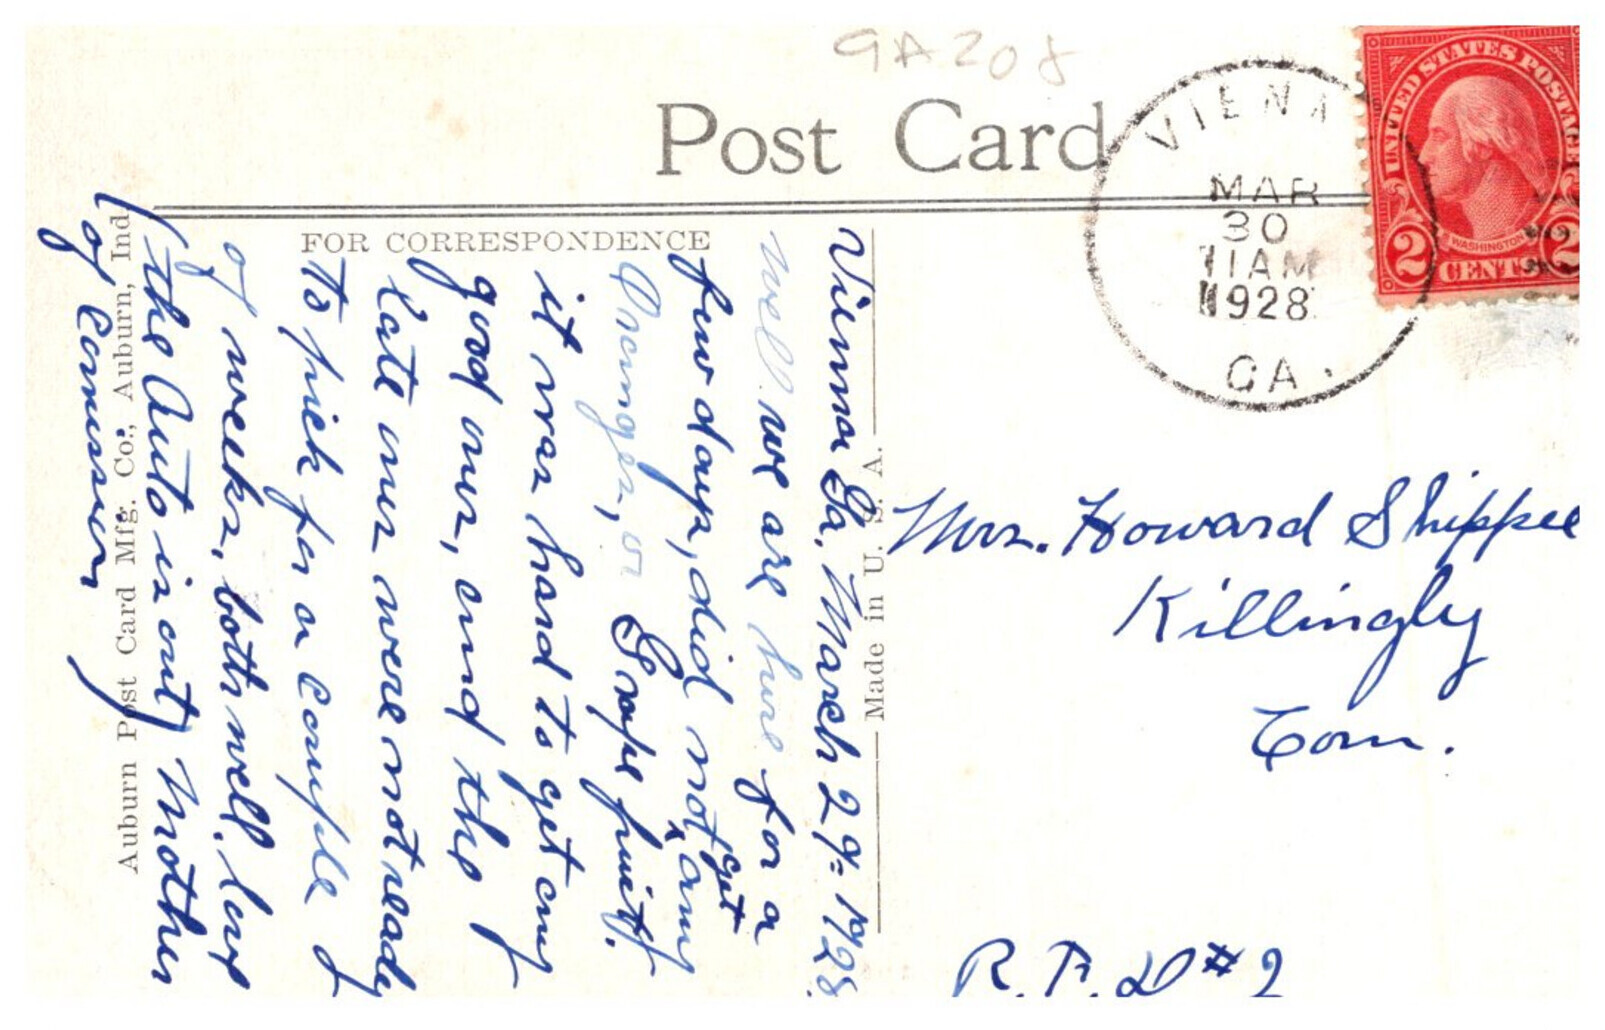 GA208
Post Card
VIENNA
MAR
30
11AM
1928
GA.
UNITED STATES POSTAGE
WASHINGTON
2 CENTS 2
FOR CORRESPONDENCE
Vienna Ga, March 29= 1928
well we are here for a
few days, did not get any
Oranges, or Grape fruit.
it was hard to get any
good ones, and the
Late ones were not ready
to pick for a Couple
of weeks, both well,
(the Auto is out) Mother
of
Mrs. Howard Shippee
Killingly
Conn.
R.F.D #2
Made in U. S. A.
Auburn Post Card Mfg. Co., Auburn, Ind